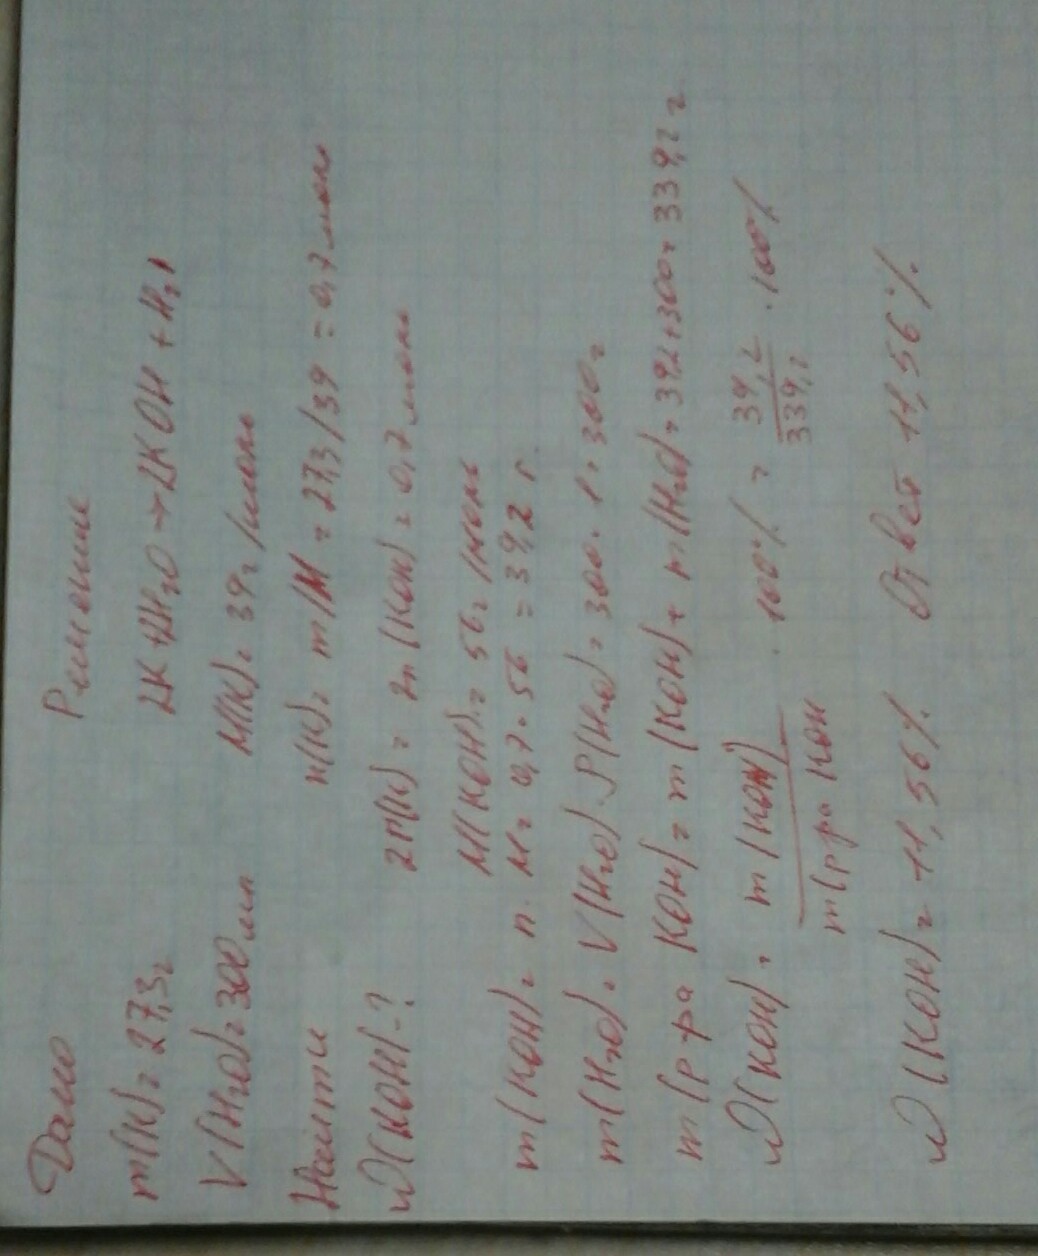 Дано
m(K)=27,3г
V(H₂O)=300мл
Найти
ω(KOH)-?
Решение
2K+2H₂O→2KOH+H₂↑
M(K)=39г/моль
n(K)=m/M=27,3/39=0,7моль
2n(K)=2n(KOH)=0,7моль
M(KOH)=56г/моль
m(KOH)=n·M=0,7·56=39,2г
m(H₂O)=V(H₂O)·ρ(H₂O)=300·1=300г
m(р-ра KOH)=m(KOH)+m(H₂O)=39,2+300=339,2г
ω(KOH)=m(KOH)/m(р-ра KOH·100%=39,2/339,2·100%
ω(KOH)=11,56% Ответ 11,56%